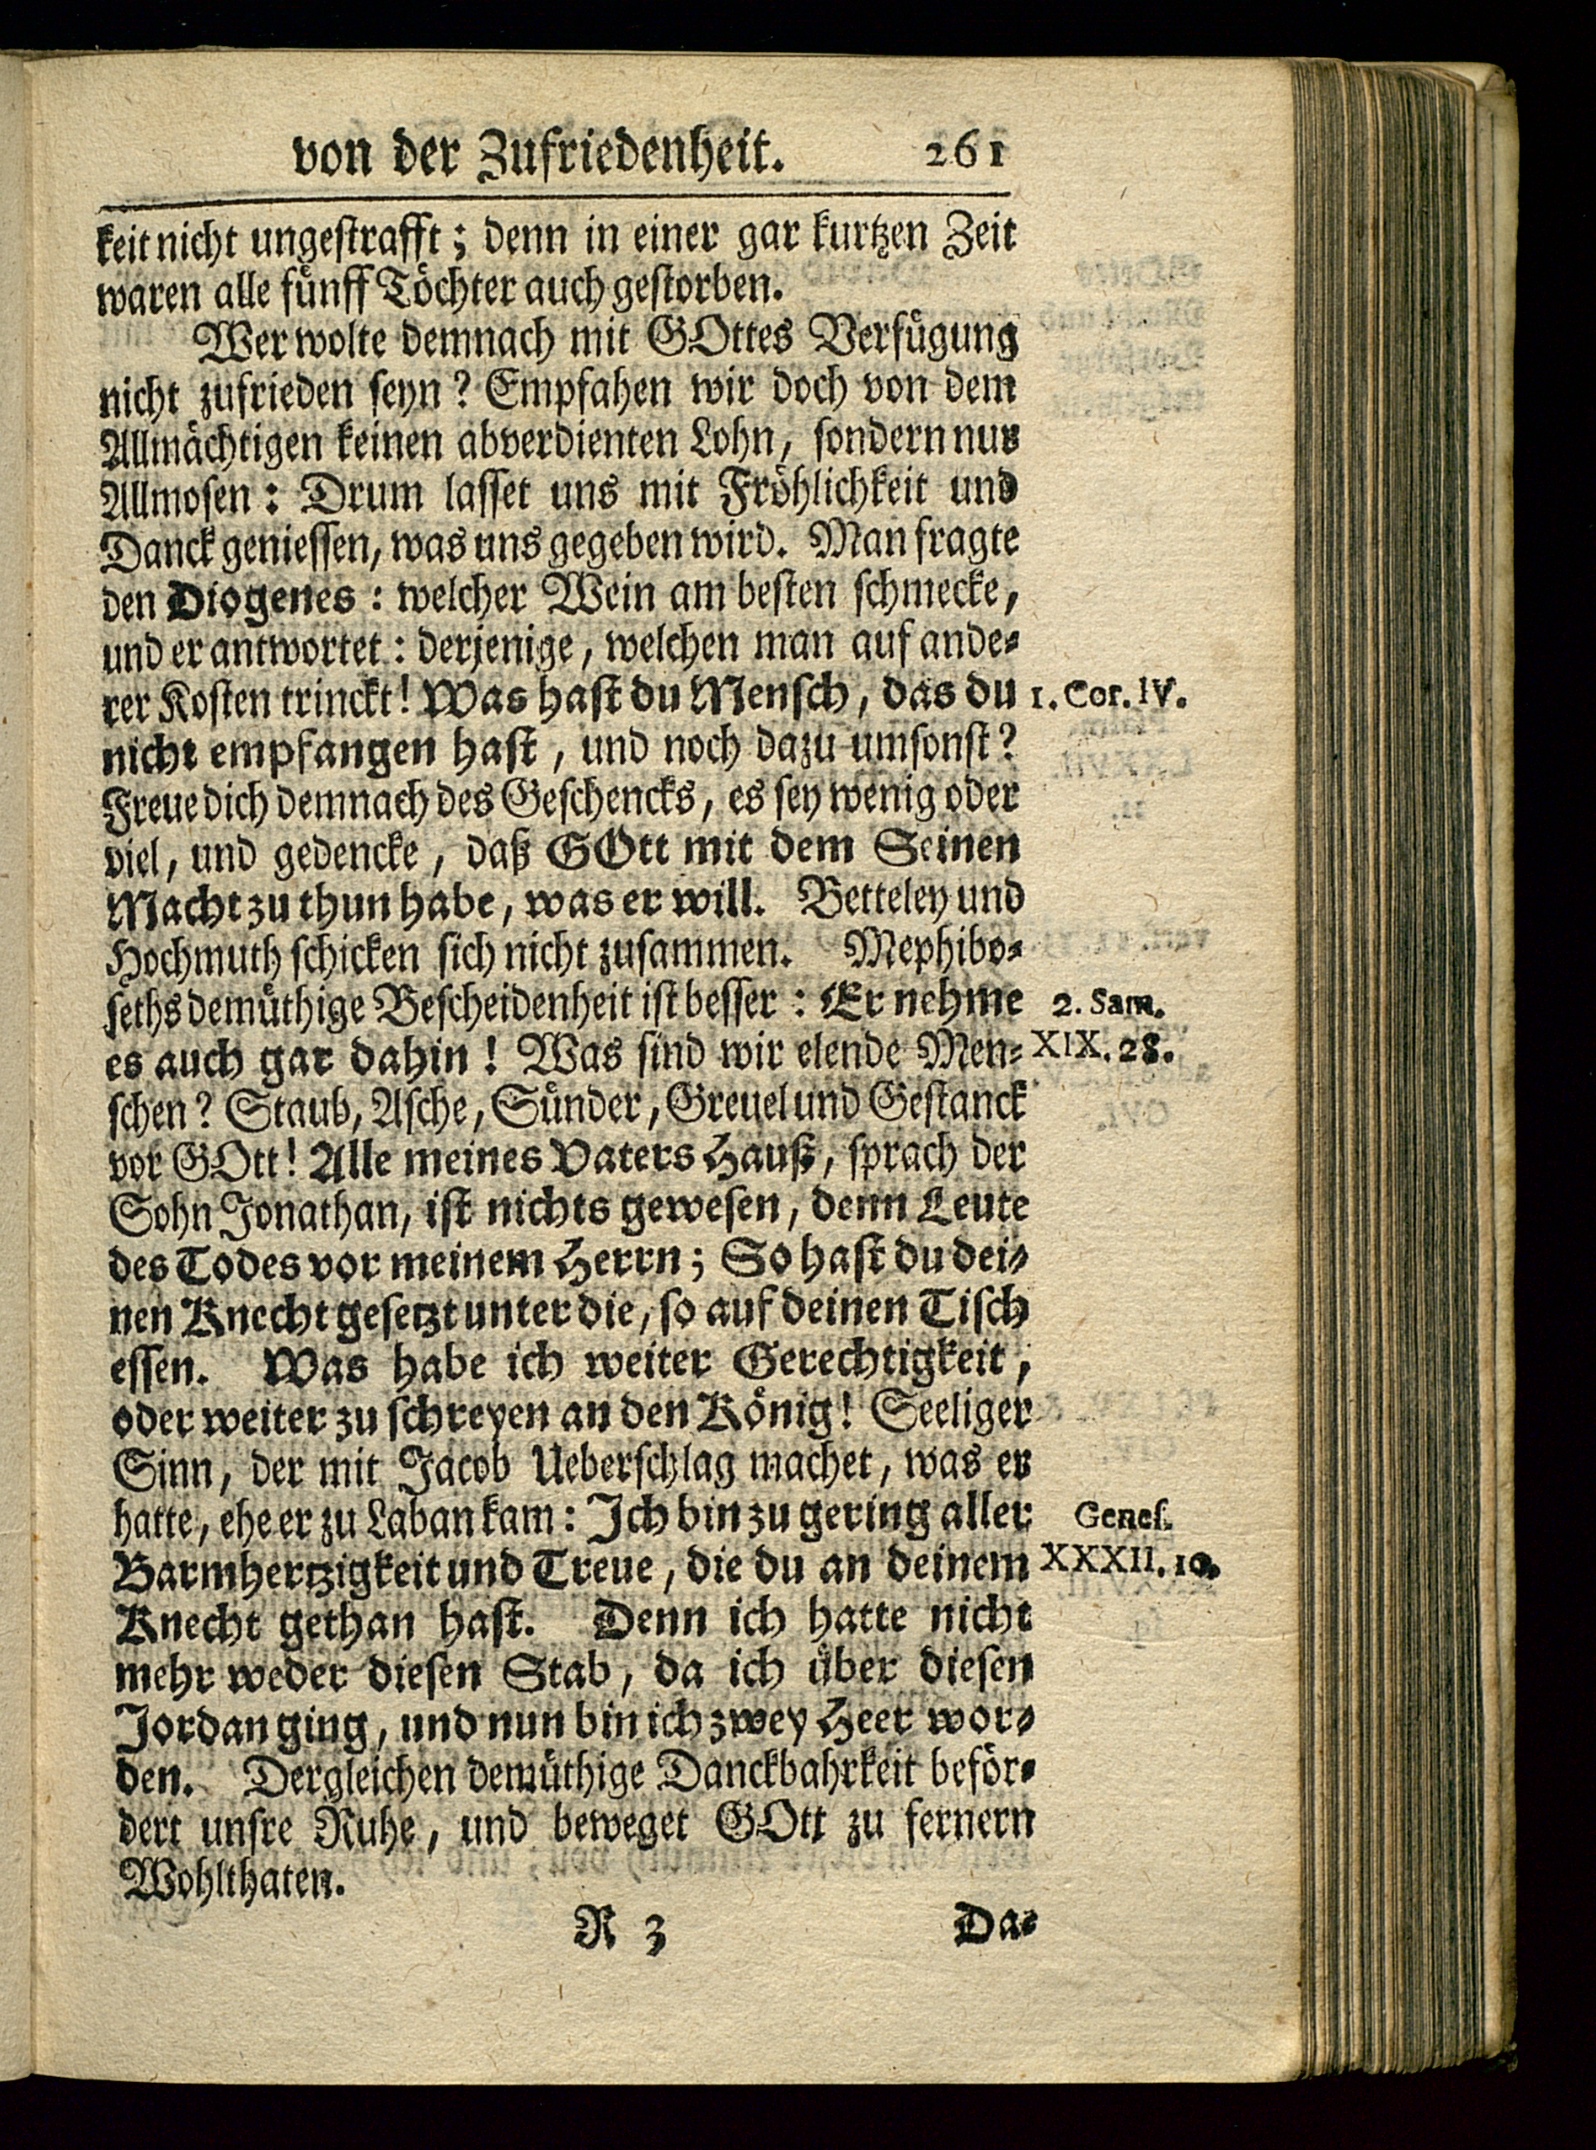 von der Zufriedenheit. 261
keit nicht ungestrafft; denn in einer gar kurtzen Zeit
waren alle fünff Töchter auch gestorben.
Wer wolte demnach mit GOttes Verfügung
nicht zufrieden seyn? Empfahen wir doch von dem
Allmächtigen keinen abverdienten Lohn, sondern nur
Allmosen: Drum lasset uns mit Fröhlichkeit und
Danck geniessen, was uns gegeben wird. Man fragte
den Diogenes: welcher Wein am besten schmecke,
und er antwortet: derjenige, welchen man auf ande-
rer Kosten trinckt! Was hast du Mensch, das du 1. Cor. IV.
nicht empfangen hast, und noch dazu umsonst?
Freue dich demnach des Geschencks, es sey wenig oder
viel, und gedencke, daß GOtt mit dem Seinen
Macht zu thun habe, was er will. Betteley und
Hochmuth schicken sich nicht zusammen. Mephibo-
seths demüthige Bescheidenheit ist besser: Er nehme 2. Sam.
es auch gar dahin! Was sind wir elende Men- XIX. 28.
schen? Staub, Asche, Sünder, Greuel und Gestanck
vor GOtt! Alle meines Vaters Hauß, sprach der
Sohn Jonathan, ist nichts gewesen, denn Leute
des Todes vor meinem Herrn; So hast du dei-
nen Knecht gesetzt unter die, so auf deinen Tisch
essen. Was habe ich weiter Gerechtigkeit,
oder weiter zu schreyen an den König! Seeliger
Sinn, der mit Jacob Ueberschlag machet, was er
hatte, ehe er zu Laban kam: Ich bin zu gering aller Genes.
Barmhertzigkeit und Treue, die du an deinem XXXII. 10.
Knecht gethan hast. Denn ich hatte nicht
mehr weder diesen Stab, da ich über diesen
Jordan ging, und nun bin ich zwey Heer wor-
den. Dergleichen demüthige Danckbahrkeit beför-
dert unsre Ruhe, und beweget GOtt zu fernern
Wohlthaten.
R 3 Da-